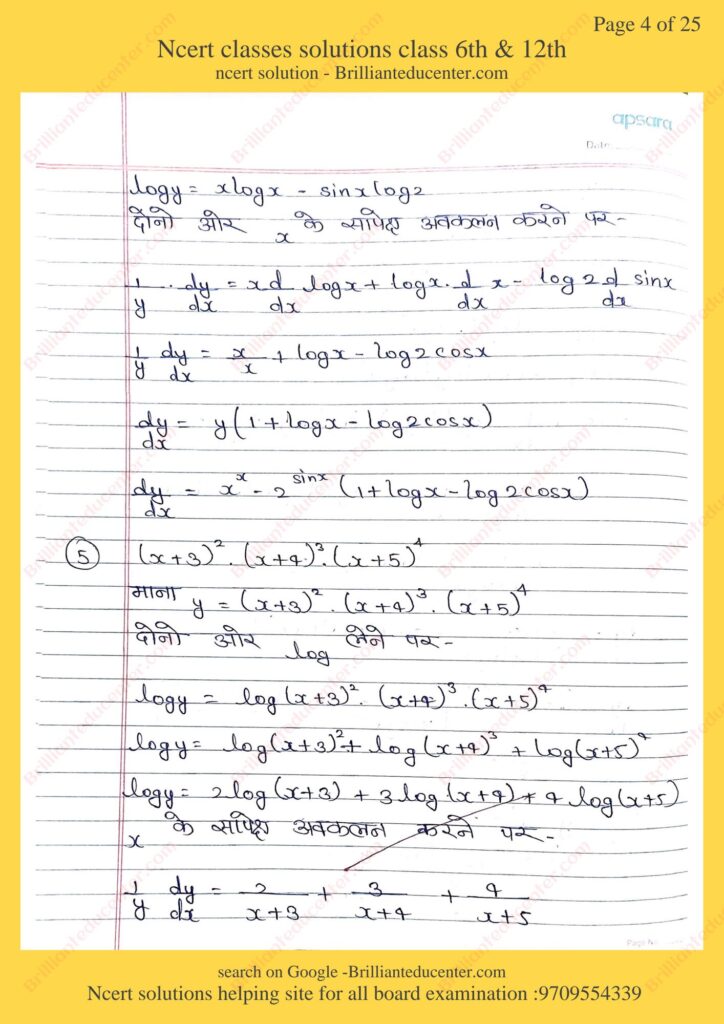 Page 4 of 25
Ncert classes solutions class 6th & 12th
ncert solution - Brillianteducenter.com
apsara
logy = xlogx - sinxlog2
दोनो ओर x के सापेक्ष अवकलन करने पर-
1/y . dy/dx = x d/dx logx + logx. d/dx x - log2 d/dx sinx
1/y dy/dx = x/x + logx - log2cosx
dy/dx = y(1+logx-log2cosx)
dy/dx = x^x - 2^sinx (1+logx-log2cosx)
5 (x+3)². (x+4)³. (x+5)⁴
माना y = (x+3)². (x+4)³. (x+5)⁴
दोनो ओर log लेने पर-
logy = log(x+3)². (x+4)³.(x+5)⁴
logy = log(x+3)²+ log(x+4)³ + log(x+5)⁴
logy = 2log(x+3) + 3log(x+4) + 4 log(x+5)
x के सापेक्ष अवकलन करने पर-
1/y dy/dx = 2/x+3 + 3/x+4 + 4/x+5
search on Google -Brillianteducenter.com
Ncert solutions helping site for all board examination :9709554339